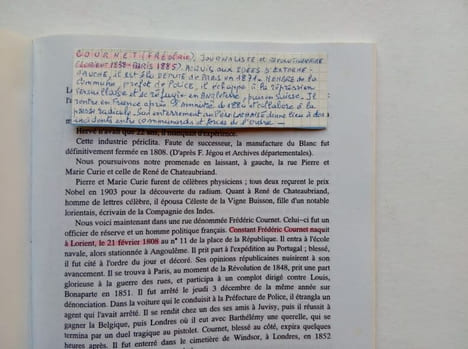 COURNET (FRÉDÉRIC), JOURNALISTE ET RÉVOLUTIONNAIRE
(LORIENT 1838-PARIS 1885). ACQUIS AUX IDÉES D'EXTRÊME-
GAUCHE, IL EST ÉLU DÉPUTÉ DE PARIS EN 1871. MEMBRE DE LA
COMMUNE, PRÉFET DE POLICE, IL ÉCHAPPE À LA RÉPRESSION
VERSAILLAISE ET SE RÉFUGIE EN ANGLETERRE, PUIS EN SUISSE. IL
RENTRE EN FRANCE APRÈS L'AMNISTIE DE 1880 ET COLLABORE À LA
PRESSE RADICALE. SON ENTERREMENT AU PÈRE LACHAISE DONNE LIEU À DES
INCIDENTS ENTRE COMMUNARDS ET FORCES DE L'ORDRE —
Hervé n'avait que 22 ans, il manquait d'expérience.
Cette industrie périclita. Faute de successeur, la manufacture du Blanc fut
définitivement fermée en 1808. (D'après F. Jégou et Archives départementales).
Nous poursuivons notre promenade en laissant, à gauche, la rue Pierre et
Marie Curie et celle de Chateaubriand.
Pierre et Marie Curie furent de célèbres physiciens ; tous deux reçurent le prix
Nobel en 1903 pour la découverte du radium. Quant à René de Chateaubriand,
homme de lettres célèbre, il épousa Céleste de la Vigne Buisson, fille d'un notable
lorientais, écrivain de la Compagnie des Indes.
Nous voici maintenant dans une rue dénommée Frédéric Cournet. Celui-ci fut un
officier de réserve et un homme politique français. Constant Frédéric Cournet naquit
à Lorient, le 21 février 1808 au n° 11 de la place de la République. Il entra à l'école
navale, alors stationnée à Angoulême. Il prit part à l'expédition au Portugal ; blessé,
il fut cité à l'ordre du jour et décoré. Ses opinions républicaines nuisirent à son
avancement. Il se trouva à Paris, au moment de la Révolution de 1848, prit une part
glorieuse à la guerre des rues, et participa à un complot dirigé contre Louis,
Bonaparte en 1851. Il fut arrêté le jeudi 3 décembre de la même année sur
dénonciation. Dans la voiture qui le conduisit à la Préfecture de Police, il étrangla un
agent qui l'avait arrêté. Il se rendit chez un des ses amis à Juvisy, puis il réussit à
gagner la Belgique, puis Londres où il eut avec Barthélémy une querelle, qui se
termina par un duel tragique au pistolet. Cournet, blessé au côté, expira quelques
heures après. Il fut enterré dans le cimetière de Windsor, à Londres, en 1852